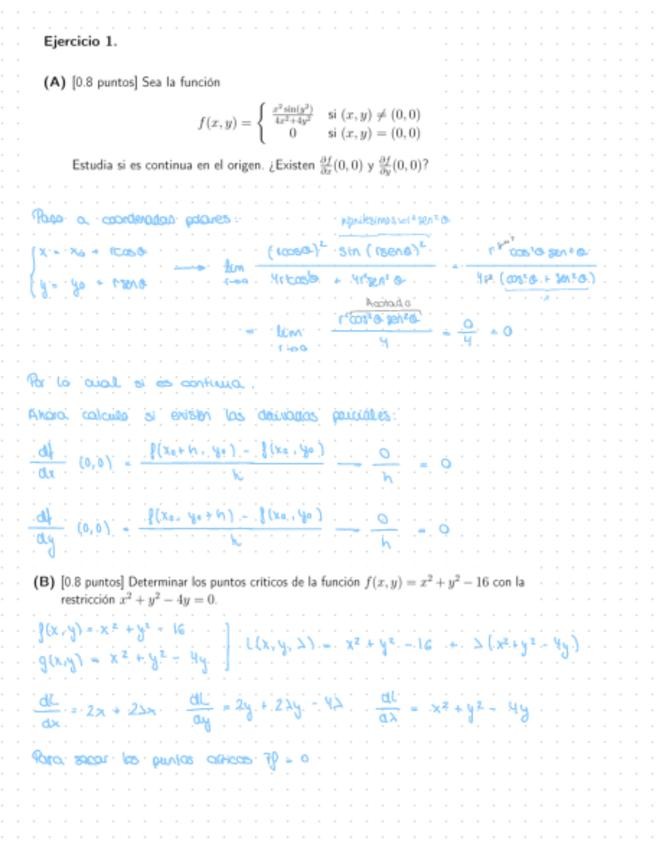 Ejercicio 1.
(A) [0.8 puntos] Sea la función
f(x, y) = { x² sin(y²) / 4x²+4y² si (x, y) ≠ (0, 0)
0 si (x, y) = (0, 0)
Estudia si es continua en el origen. ¿Existen ∂f/∂x (0, 0) y ∂f/∂y (0, 0)?
Paso a coordenadas polares:
{ x = x₀ + rcosθ
y = y₀ + rsenθ
→ lim r→0 (rcosθ)² · sin (rsenθ)² / 4r²cos²θ + 4r²sen²θ = cos²θ sen²θ / 4r² (cos²θ + sen²θ)
Acotado
= lim r→0 r²cos²θ sen²θ / 4 = 0/4 = 0
Por lo cual si es continua.
Ahora calculo si existen las derivadas parciales:
df/dx (0,0) = f(x₀+h, y₀) - f(x₀, y₀) / h — 0/h = 0
df/dy (0,0) = f(x₀, y₀+h) - f(x₀, y₀) / h — 0/h = 0
(B) [0.8 puntos] Determinar los puntos críticos de la función f(x, y) = x² + y² − 16 con la
restricción x² + y² − 4y = 0.
f(x,y) = x² + y² - 16
g(x,y) = x² + y² - 4y
] L(x,y,λ) = x² + y² - 16 + λ(x²+y² - 4y)
dL/dx = 2x + 2λx dL/dy = 2y + 2λy - 4λ dL/dλ = x² + y² - 4y
Para sacar los puntos críticos ∇f = 0